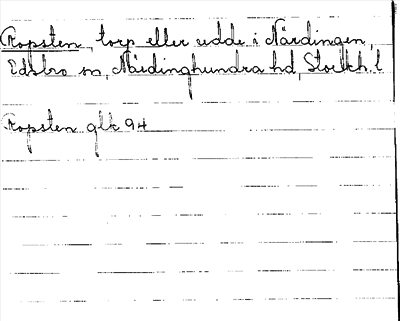 Ropsten, torp eller udde i Närdingen,
Edsbro sn, Närdinghundra hd, Stockh. l
Ropsten glk 94